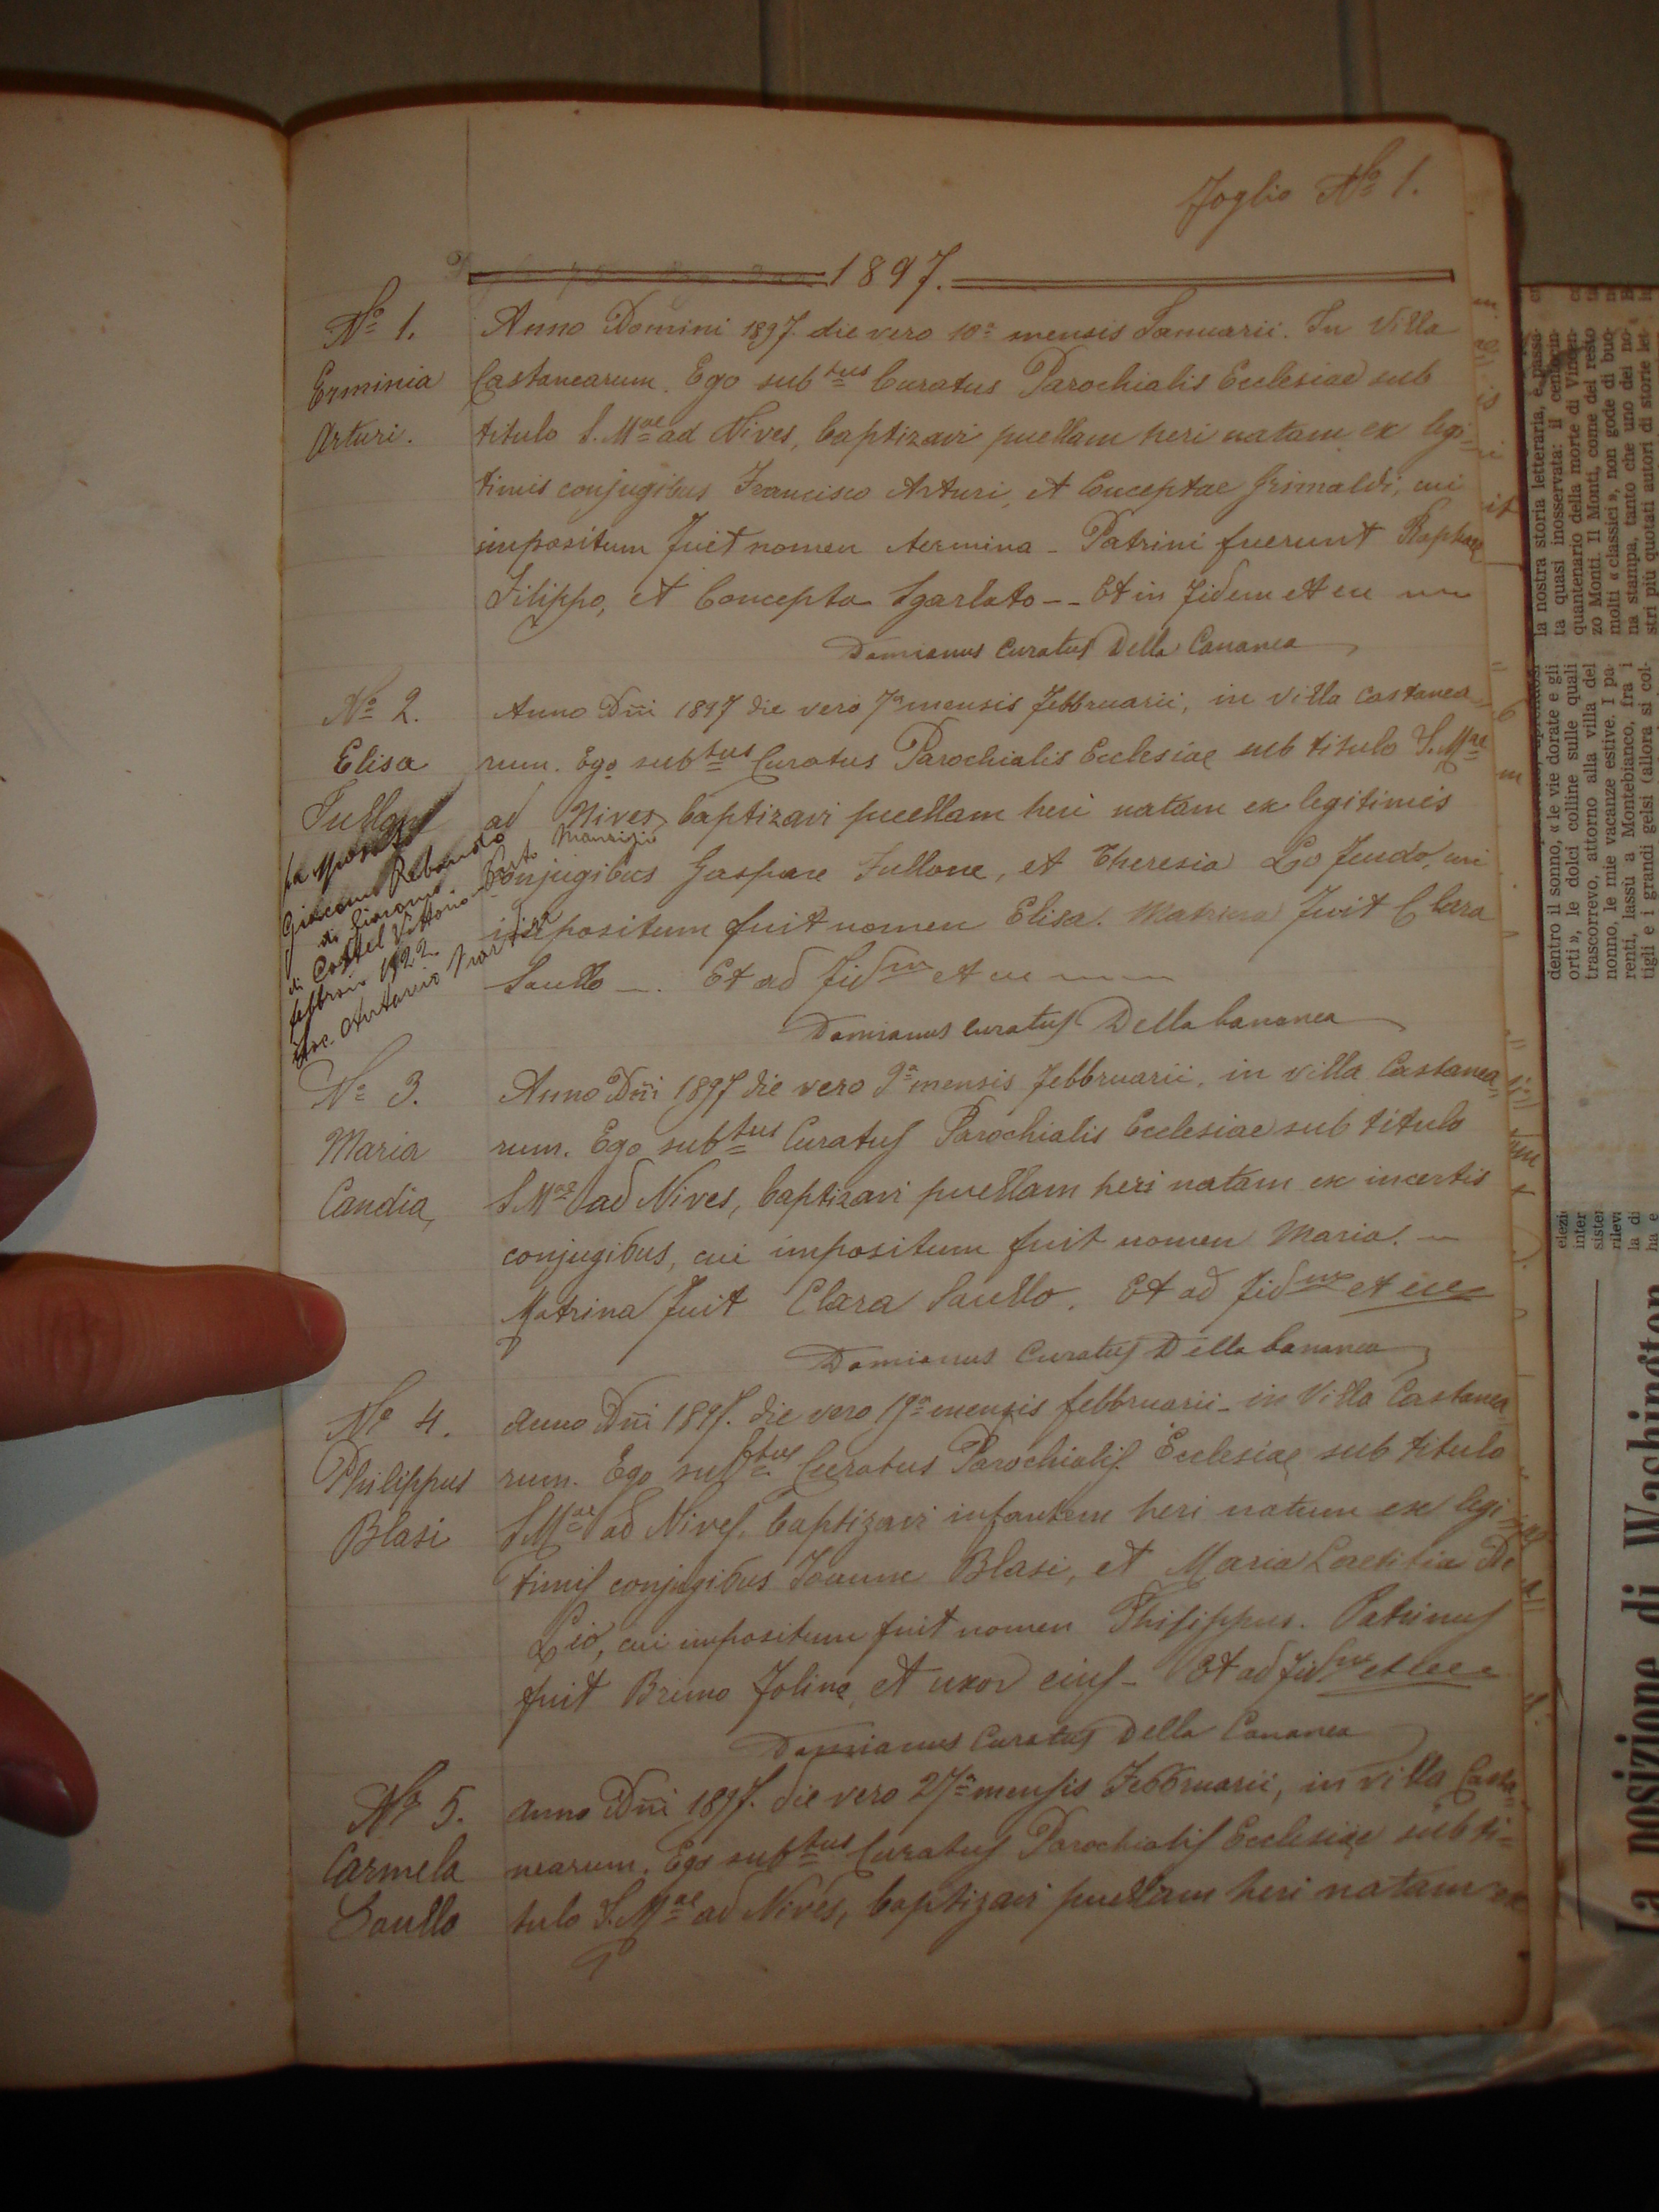 Foglio Nº 1.
1897.
Nº 1.
Erminia
Arturi.
Anno Domini 1897. die vero 10ª mensis Januarii. In Villa
Castanearum. Ego subtus Curatus Parochialis Ecclesiae sub
titulo S. Mae ad Nives, baptizavi puellam heri natam ex legi-
timis conjugibus Francisco Arturi, et Conceptae Grimaldi, cui
impositum fuit nomen Aermina - Patrini fuerunt Raphael
Filippo, et Concepta Sgarlato -- Et in fidem et cu
Damianus Curatus Della Cananea
Nº 2.
Elisa
Fullone
Giacomo
di Giacomo
di Castel Vittorio - Porto Maurizio
febbraio 1922.
Anno Dñi 1897 die vero 7ª mensis Febbruarii, in villa Castanea=
rum. Ego subtus Curatus Parochialis Ecclesiae sub titulo S. Mae
ad Nives, baptizavi puellam heri natam ex legitimis
conjugibus Gaspare Fullone, et Theresia Lo Feudo, cui
impositum fuit nomen Elisa. Matrina fuit Clara
Saullo -. Et ad fidm et cu
Damianus Curatus Della Cananea
Nº 3.
Maria
Candia,
Anno Dñi 1897 die vero 9ª mensis Febbruarii, in villa Castanea=
rum. Ego subtus Curatus Parochialis Ecclesiae sub titulo
S Mae ad Nives, baptizavi puellam heri natam ex incertis
conjugibus, cui impositum fuit nomen Maria. -
Matrina fuit Clara Saullo. Et ad fidm et cu
Damianus Curatus Della Cananea
Nº 4.
Philippus
Blasi
Anno Dñi 1897. die vero 19ª mensis febbruarii - in Villa Castanea=
rum. Ego subtus Curatus Parochialis Ecclesiae sub titulo
S Mae ad Nives, baptizavi infantem heri natum ex legi=
timis conjugibus Joanne Blasi, et Maria Loretitia De
Lio, cui impositum fuit nomen Philippus. Patrinus
fuit Bruno Foline, et uxor eius - Et ad fidm et cu
Damianus Curatus Della Cananea
Nº 5.
Carmela
Saullo
Anno Dñi 1897. die vero 27ª mensis Febbruarii, in villa Casta=
nearum. Ego subtus Curatus Parochialis Ecclesiae sub ti=
tulo S. Mae ad Nives, baptizavi puellam heri natam ex
la nostra storia letteraria, è passa-
ta quasi inosservata: il cencin-
quantenario della morte di Vincen-
zo Monti. Il Monti, come del resto
molti « classici », non gode di buo-
na stampa, tanto che uno dei no-
stri più quotati autori di storie let-
dentro il sonno, « le vie dorate e gli
orti », le dolci colline sulle quali
trascorrevo, attorno alla villa del
nonno, le mie vacanze estive. I pa-
renti, lassù a Montebianco, fra i
tigli e i grandi gelsi (allora si col-
elezi
inter
sister
rilev
la di
ha e
La posizione di Washington